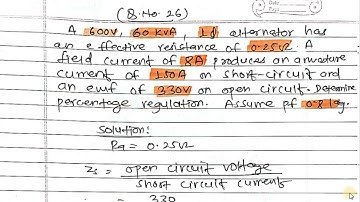 (Q.No. 26)
A 600V, 60 KVA, 1ϕ alternator has
an effective resistance of 0.25Ω. A
field current of 8A produces an armature
current of 150A on short-circuit and
an emf of 330V on open circuit. Determine
percentage regulation. Assume pf 0.8 lag.
Solution:
Ra = 0.25Ω
Zs = open circuit voltage
short circuit current
= 330